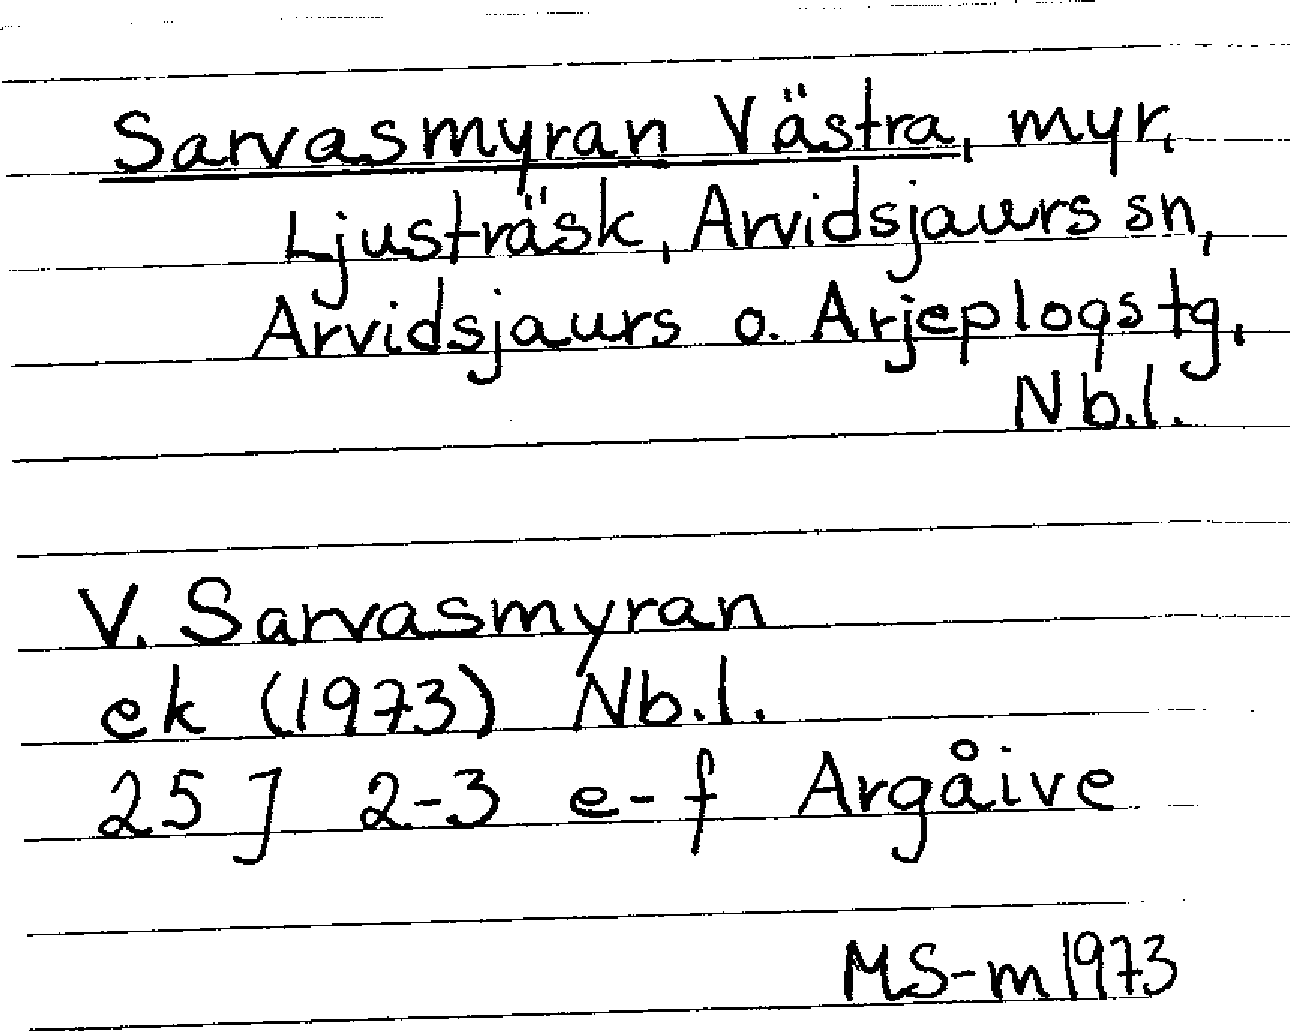 Sarvasmyran Västra, myr,
Ljusträsk, Arvidsjaurs sn,
Arvidsjaurs o. Arjeplogs tg,
Nb.l.
V. Sarvasmyran
ek (1973) Nb.l.
25 J 2-3 e-f Argåive
MS-m 1973